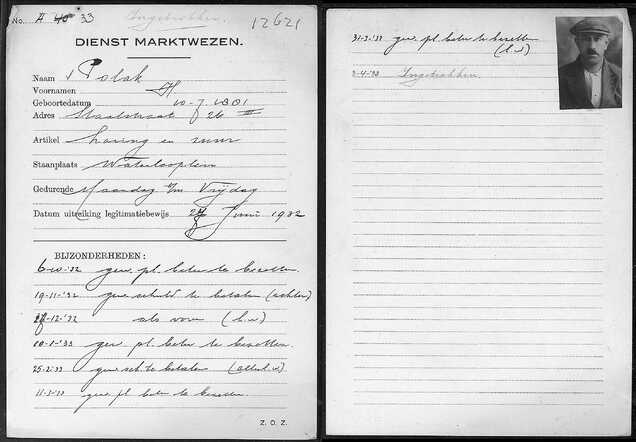 No. A 40 33 Ingetrokken. 12621
DIENST MARKTWEZEN.
Naam Polak
Voornamen H
Geboortedatum 10-7 1881
Adres Staalstraat 26 III
Artikel haring en zuur
Staanplaats Waterlooplein
Gedurende Maandag t/m Vrijdag
Datum uitreiking legitimatiebewijs 24 Juni 1932
BIJZONDERHEDEN:
6-10-'32 gew. pl. beter te bezetten.
19-11-'32 gew. schuld te betalen (achter)
-12-'32 als voren (h.v)
10-1-'33 gew. pl. beter te bezetten.
25-2-'33 gew. sch. te betalen
11-3-'33 gew. pl. beter te bezetten.
Z. O. Z.
31-3-'33 gew. pl. beter te bezetten
(h.v)
-4-'33 Ingetrokken.